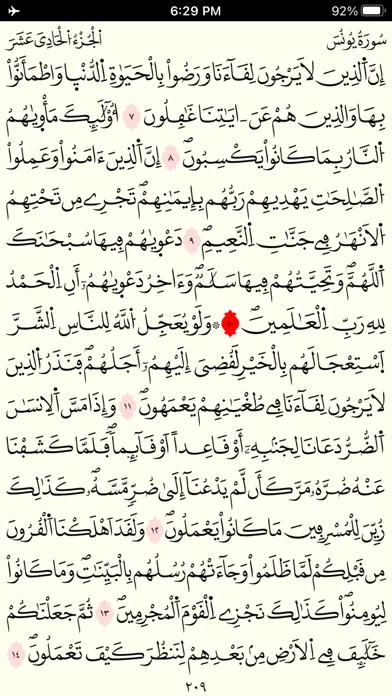 6:29 PM 92%
سُورَةُ يُونُسَ اَلْجُزْءُ الْحَادِي عَشَرَ
إِنَّ اَلذِينَ لَا يَرْجُونَ لِقَآءَنَا وَرَضُواْ بِالْحَيَوٰةِ اِلدُّنْيٜا وَاطْمَأَنُّواْ
بِهَا وَالذِينَ هُمْ عَنَ ـ ايَٰتِنَا غَٰفِلُونَ ٧ أُوْلَٰٓئِكَ مَأْوٜيٰهُمُ
اُلنَّارُ بِمَا كَانُواْ يَكْسِبُونَ ٨ إِنَّ اَلذِينَ ءَامَنُواْ وَعَمِلُواْ
اُلصَّٰلِحَٰتِ يَهْدِيهِمْ رَبُّهُم بِإِيمَٰنِهِمْ تَجْرِے مِن تَحْتِهِمُ
اُلَانْهَٰرُ فِے جَنَّٰتِ اِلنَّعِيمِ ٩ دَعْوٜيٰهُمْ فِيهَا سُبْحَٰنَكَ
اَللَّهُمَّ وَتَحِيَّتُهُمْ فِيهَا سَلَٰمٞ وَءَاخِرُ دَعْوٜيٰهُمُۥٓ أَنِ اِلْحَمْدُ
لِلهِ رَبِّ اِلْعَٰلَمِينَ ١٠ ۞ وَلَوْ يُعَجِّلُ اُللَّهُ لِلنَّاسِ اِلشَّرَّ
اَسْتِعْجَالَهُم بِالْخَيْرِ لَقُضِيَ إِلَيْهِمُۥٓ أَجَلُهُمْ فَنَذَرُ اُلذِينَ
لَا يَرْجُونَ لِقَآءَنَا فِے طُغْيَٰنِهِمْ يَعْمَهُونَ ١١ وَإِذَا مَسَّ اَلِانسَٰنَ
اَلضُّرُّ دَعَانَا لِجَنۢبِهِۦٓ أَوْ قَاعِداً اَوْ قَآئِماٗ فَلَمَّا كَشَفْنَا
عَنْهُ ضُرَّهُۥ مَرَّ كَأَن لَّمْ يَدْعُنَآ إِلَىٰ ضُرّٖ مَّسَّهُۥ كَذَٰلِكَ
زُيِّنَ لِلْمُسْرِفِينَ مَا كَانُواْ يَعْمَلُونَ ١٢ وَلَقَدَ اَهْلَكْنَا اَلْقُرُونَ
مِن قَبْلِكُمْ لَمَّا ظَلَمُواْ وَجَآءَتْهُمْ رُسُلُهُم بِالْبَيِّنَٰتِ وَمَا كَانُواْ
لِيُومِنُواْ كَذَٰلِكَ نَجْزِے اِلْقَوْمَ اَلْمُجْرِمِينَ ١٣ ثُمَّ جَعَلْنَٰكُمْ
خَلَٰٓئِفَ فِے اِلَارْضِ مِنۢ بَعْدِهِمْ لِنَنظُرَ كَيْفَ تَعْمَلُونَ ١٤
٢٠٩